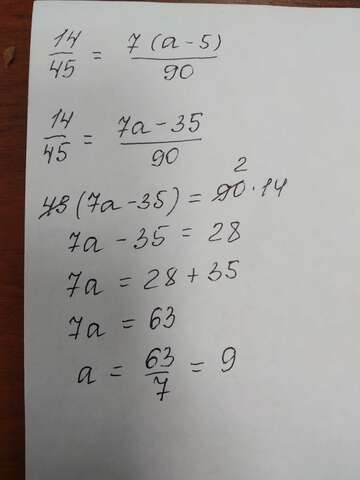 14/45 = 7(a-5)/90
14/45 = 7a-35/90
45(7a-35) = 90·14
2
7a - 35 = 28
7a = 28 + 35
7a = 63
a = 63/7 = 9